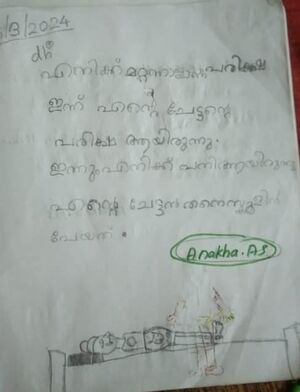 /3/2024
എനിക്ക് മറ്റന്നാളാണ് പരീക്ഷ
ഇന്ന് എന്റെ ചേട്ടന്റെ
പരീക്ഷാ ആയിരുന്നു.
ഇന്നും എനിക്ക് പനിആയിരുന്നു
എന്റെ ചേട്ടൻ
പോയത്.
Anakha.AS